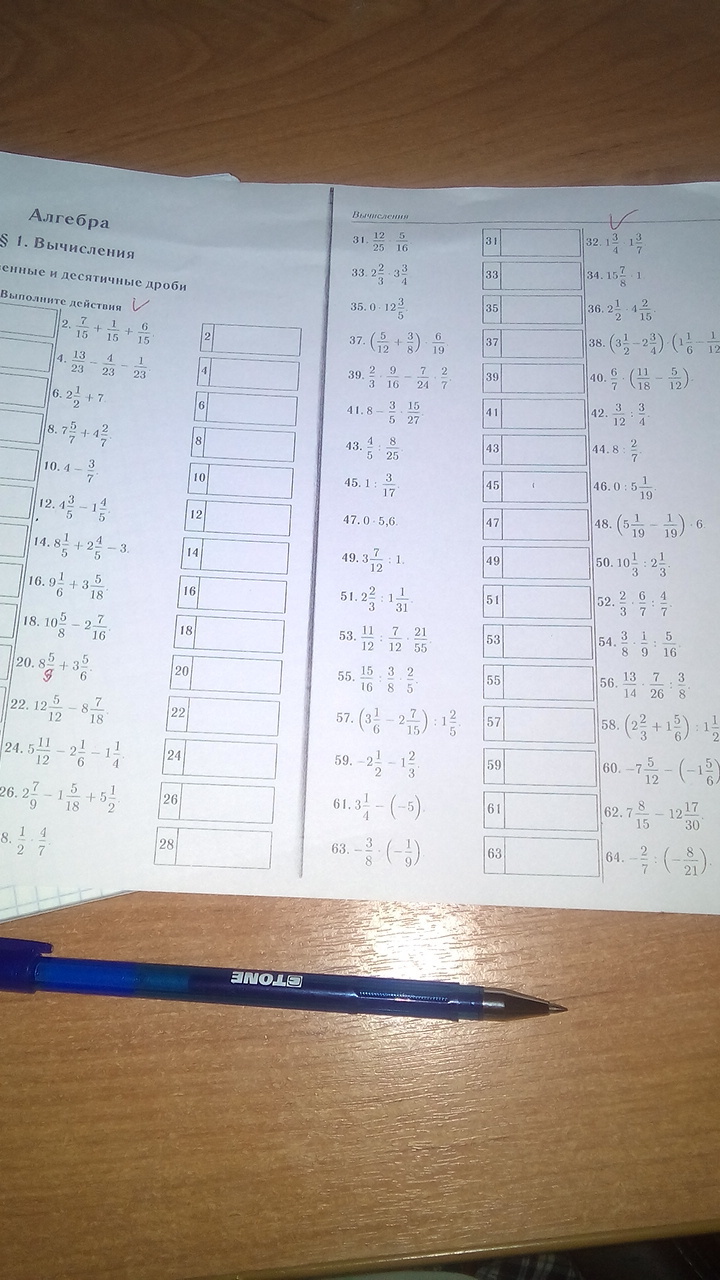 Алгебра
§ 1. Вычисления
и десятичные дроби
Выполните действия
2. 7/15 + 1/15 + 6/15. 2
4. 13/23 − 4/23 − 1/23. 4
6. 2 1/2 + 7. 6
8. 7 5/7 + 4 2/7. 8
10. 4 − 3/7. 10
12. 4 3/5 − 1 4/5. 12
14. 8 1/5 + 2 4/5 − 3. 14
16. 9 1/6 + 3 5/18. 16
18. 10 5/8 − 2 7/16. 18
20. 8 5/9 + 3 5/6. 20
22. 12 5/12 − 8 7/18. 22
24. 5 11/12 − 2 1/6 − 1 1/4. 24
26. 2 7/9 − 1 5/18 + 5 1/2. 26
8. 1/2 · 4/7. 28
Вычисления
31. 12/25 · 5/16. 31 32. 1 3/4 · 1 3/7.
33. 2 2/3 · 3 3/4. 33 34. 15 7/8 · 1.
35. 0 · 12 3/5. 35 36. 2 1/2 · 4 2/15.
37. (5/12 + 3/8) · 6/19. 37 38. (3 1/2 − 2 3/4) · (1 1/6 − 1/12
39. 2/3 · 9/16 − 7/24 · 2/7. 39 40. 6/7 · (11/18 − 5/12).
41. 8 − 3/5 · 15/27. 41 42. 3/12 : 3/4.
43. 4/5 : 8/25. 43 44. 8 : 2/7.
45. 1 : 3/17. 45 46. 0 : 5 1/19.
47. 0 · 5,6. 47 48. (5 1/19 − 1/19) · 6.
49. 3 7/12 : 1. 49 50. 10 1/3 : 2 1/3.
51. 2 2/3 : 1 1/31. 51 52. 2/3 · 6/7 : 4/7.
53. 11/12 : 7/12 · 21/55. 53 54. 3/8 · 1/9 : 5/16.
55. 15/16 : 3/8 · 2/5. 55 56. 13/14 · 7/26 : 3/8.
57. (3 1/6 − 2 7/15) : 1 2/5. 57 58. (2 2/3 + 1 5/6) : 1 1/2
59. −2 1/2 − 1 2/3. 59 60. −7 5/12 − (−1 5/6)
61. 3 1/4 − (−5). 61 62. 7 8/15 − 12 17/30.
63. −3/8 · (−1/9) 63 64. −2/7 : (−8/21).
TONE